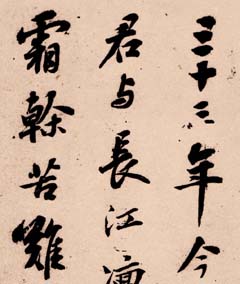 三十三年今
君与長江
霜幹苦難